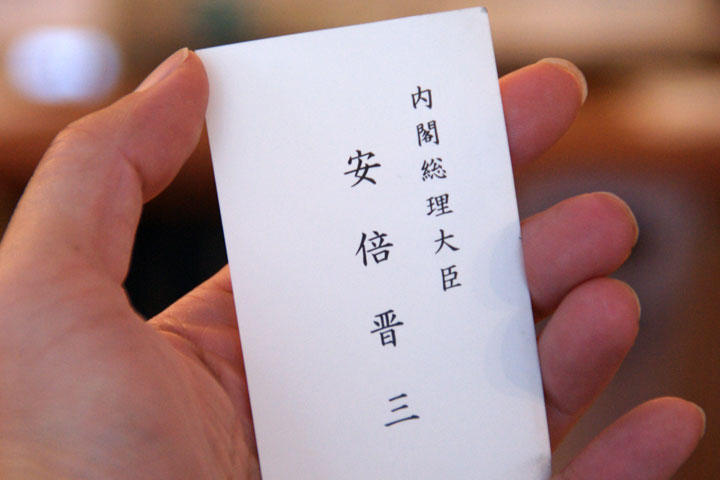 内閣総理大臣
安倍晋三